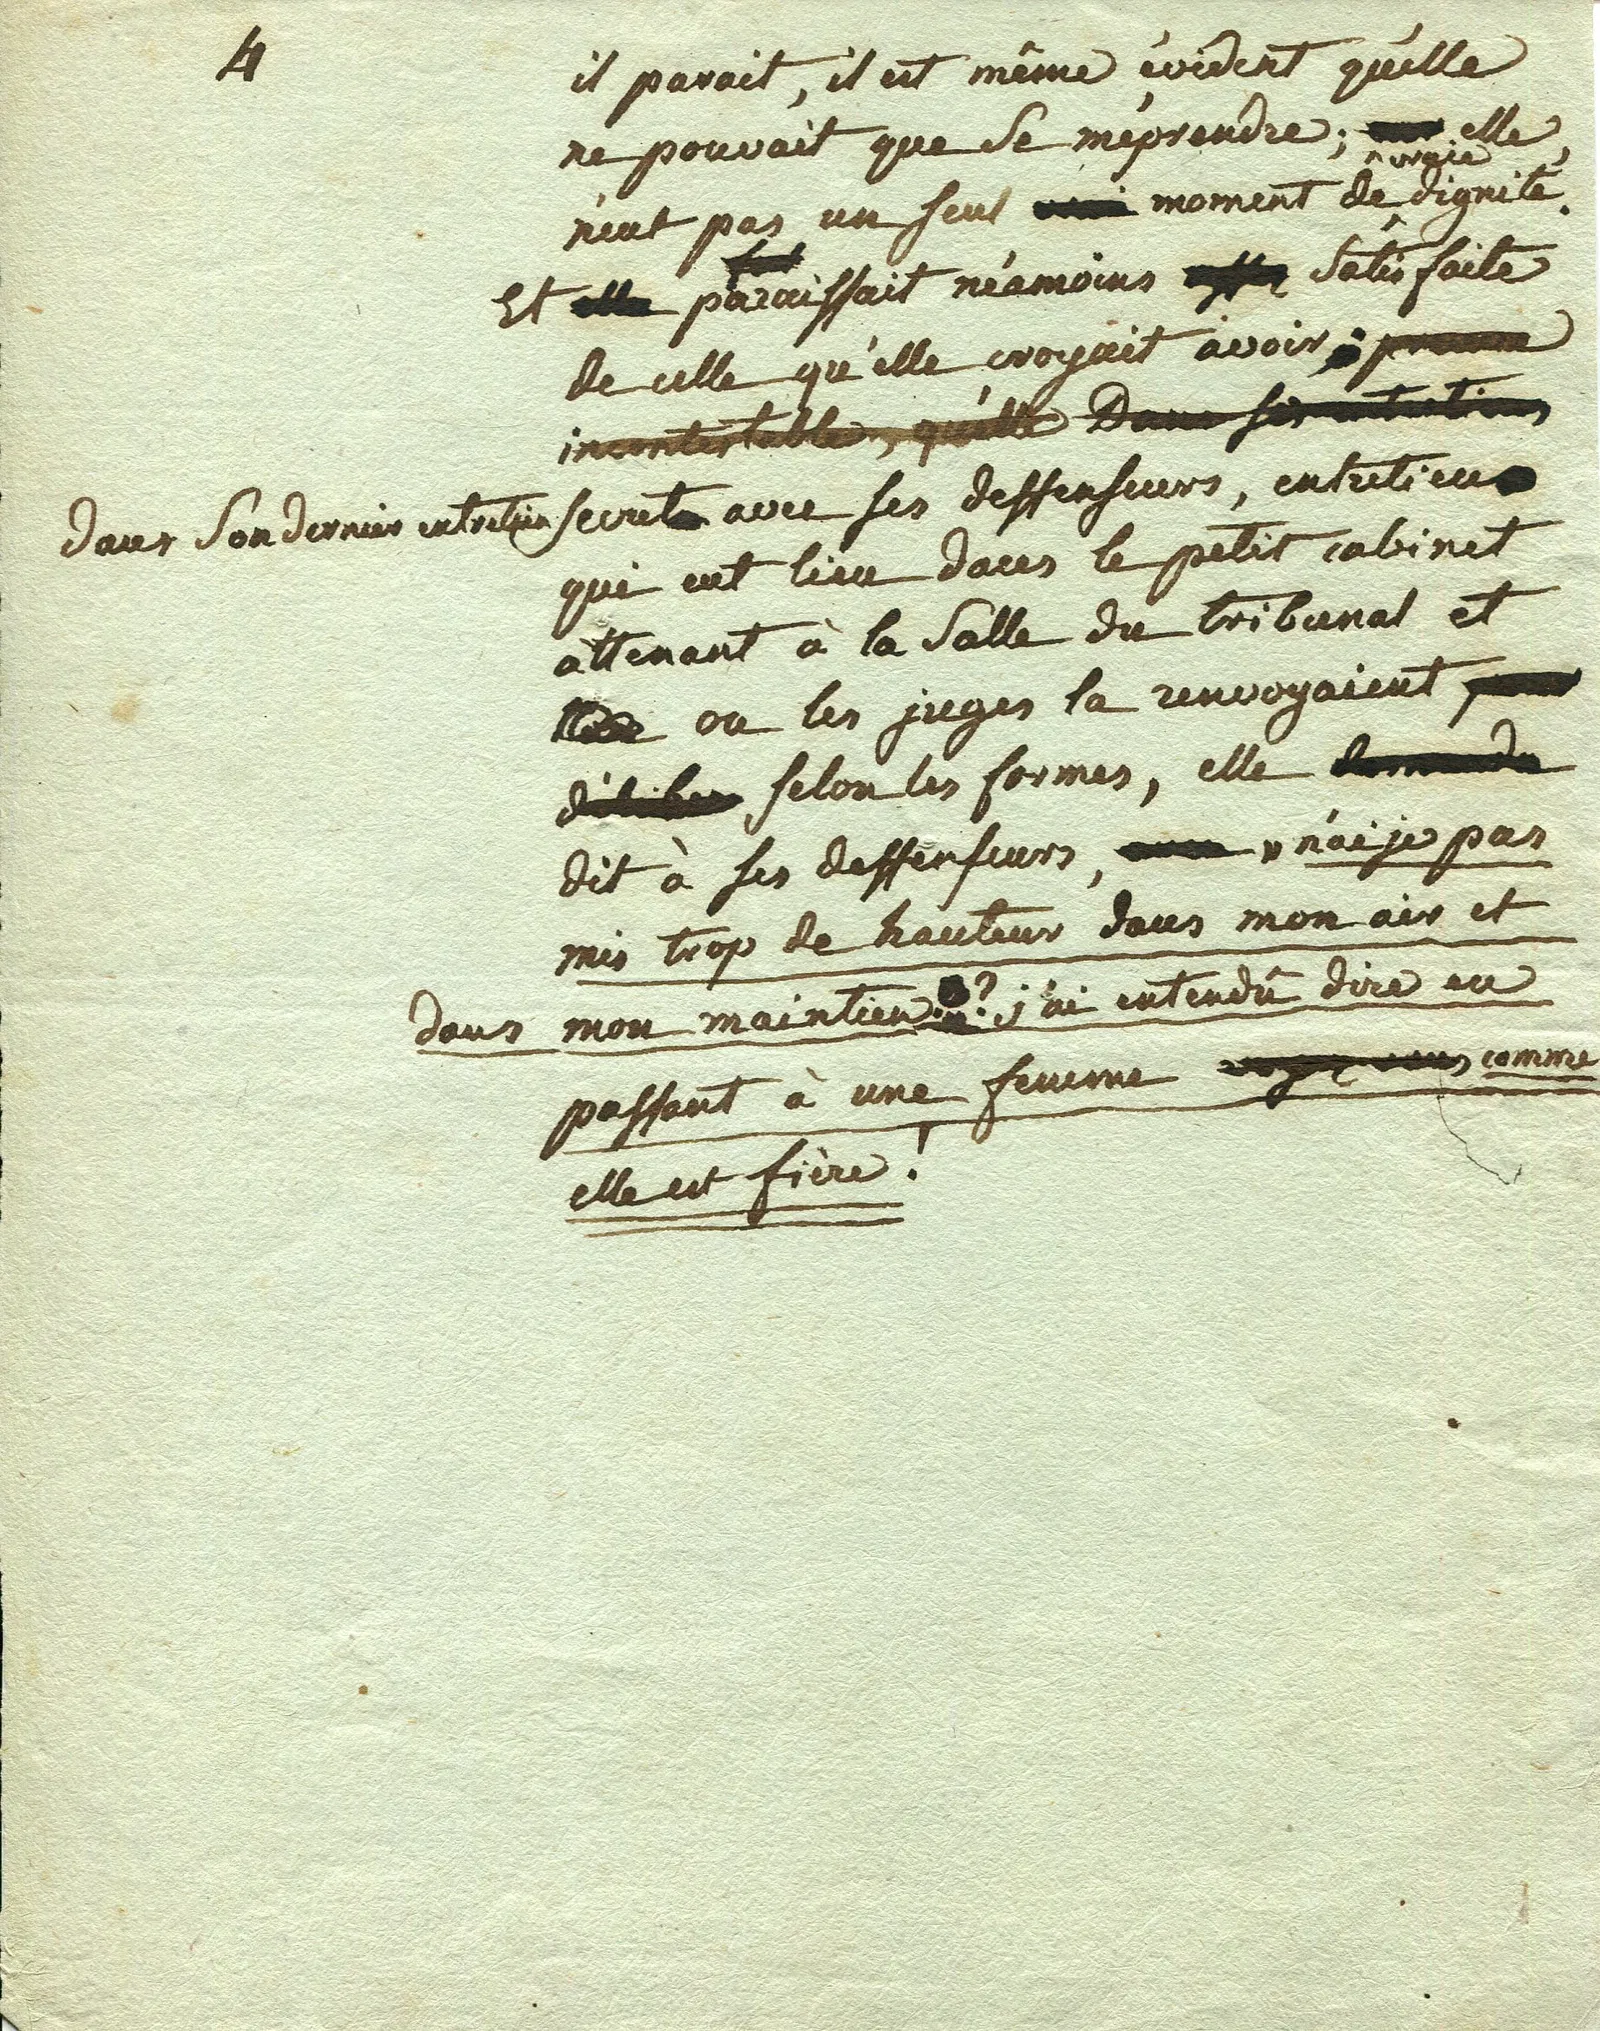 4
il parait, il est même évident qu'elle
ne pouvait que se méprendre; elle
n'eut pas un seul moment de vraie dignité.
Et elle paraissait néamoins satisfaite
de celle qu'elle croyait avoir,
incontestable, qu'elle Dans ses entretiens
dans son dernier entretien secret avec ses deffenseurs, entretien
qui eut lieu dans le petit cabinet
attenant à la salle du tribunal et
ou les juges la renvoyaient pour
délibérer selon les formes, elle demanda
dit à ses deffenseurs, » n'ai je pas
mis trop de hauteur dans mon air et
dans mon maintien? j'ai entendû dire en
passant à une femme voyez vous comme
elle est fière!